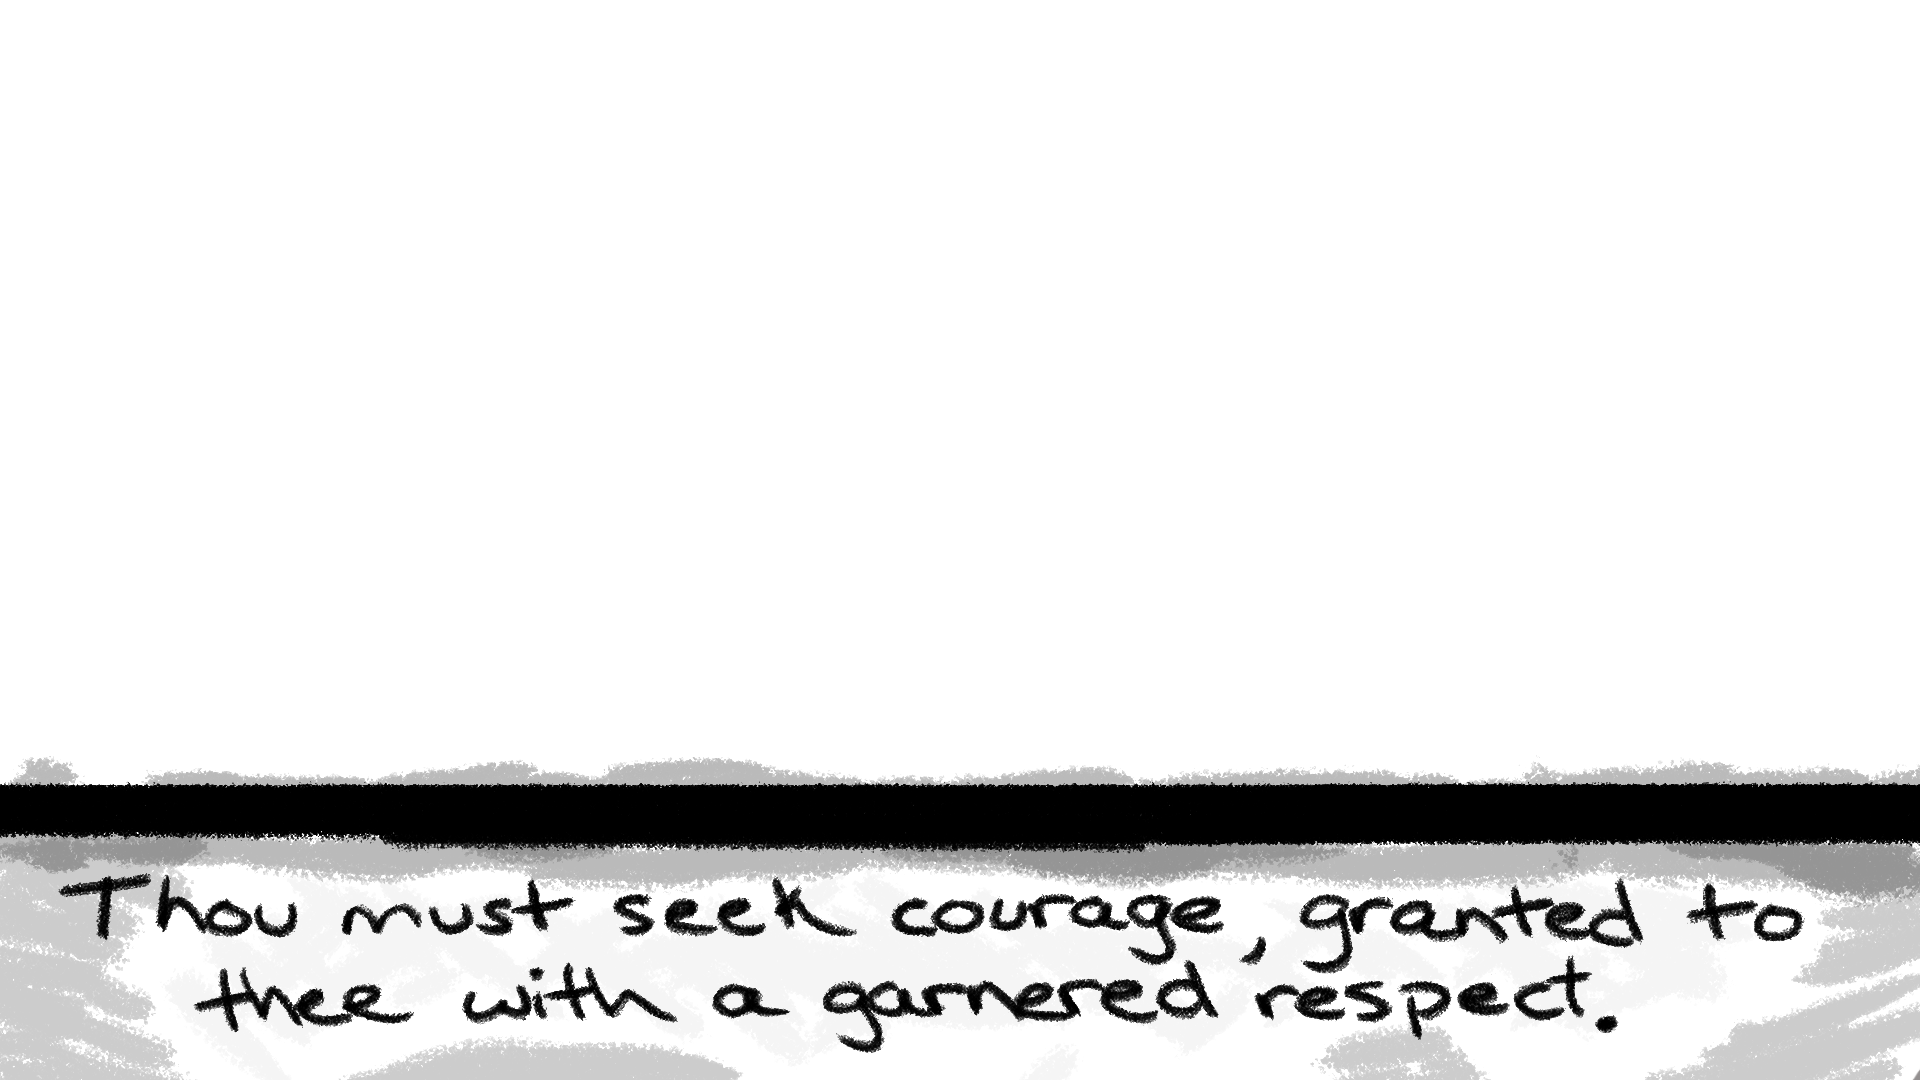 Thou must seek courage, granted to
thee with a garnered respect.